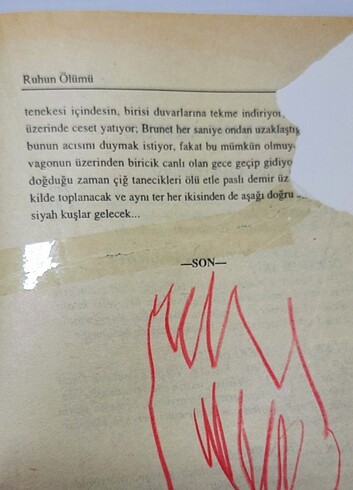 Ruhun Ölümü
tenekesi içindesin, birisi duvarlarına tekme indiriyor,
üzerinde ceset yatıyor; Brunet her saniye ondan uzaklaştığ
bunun acısını duymak istiyor, fakat bu mümkün olmuy
vagonun üzerinden biricik canlı olan gece geçip gidiyo
doğduğu zaman çiğ tanecikleri ölü etle paslı demir üz
kilde toplanacak ve aynı ter her ikisinden de aşağı doğru
siyah kuşlar gelecek...
—SON—